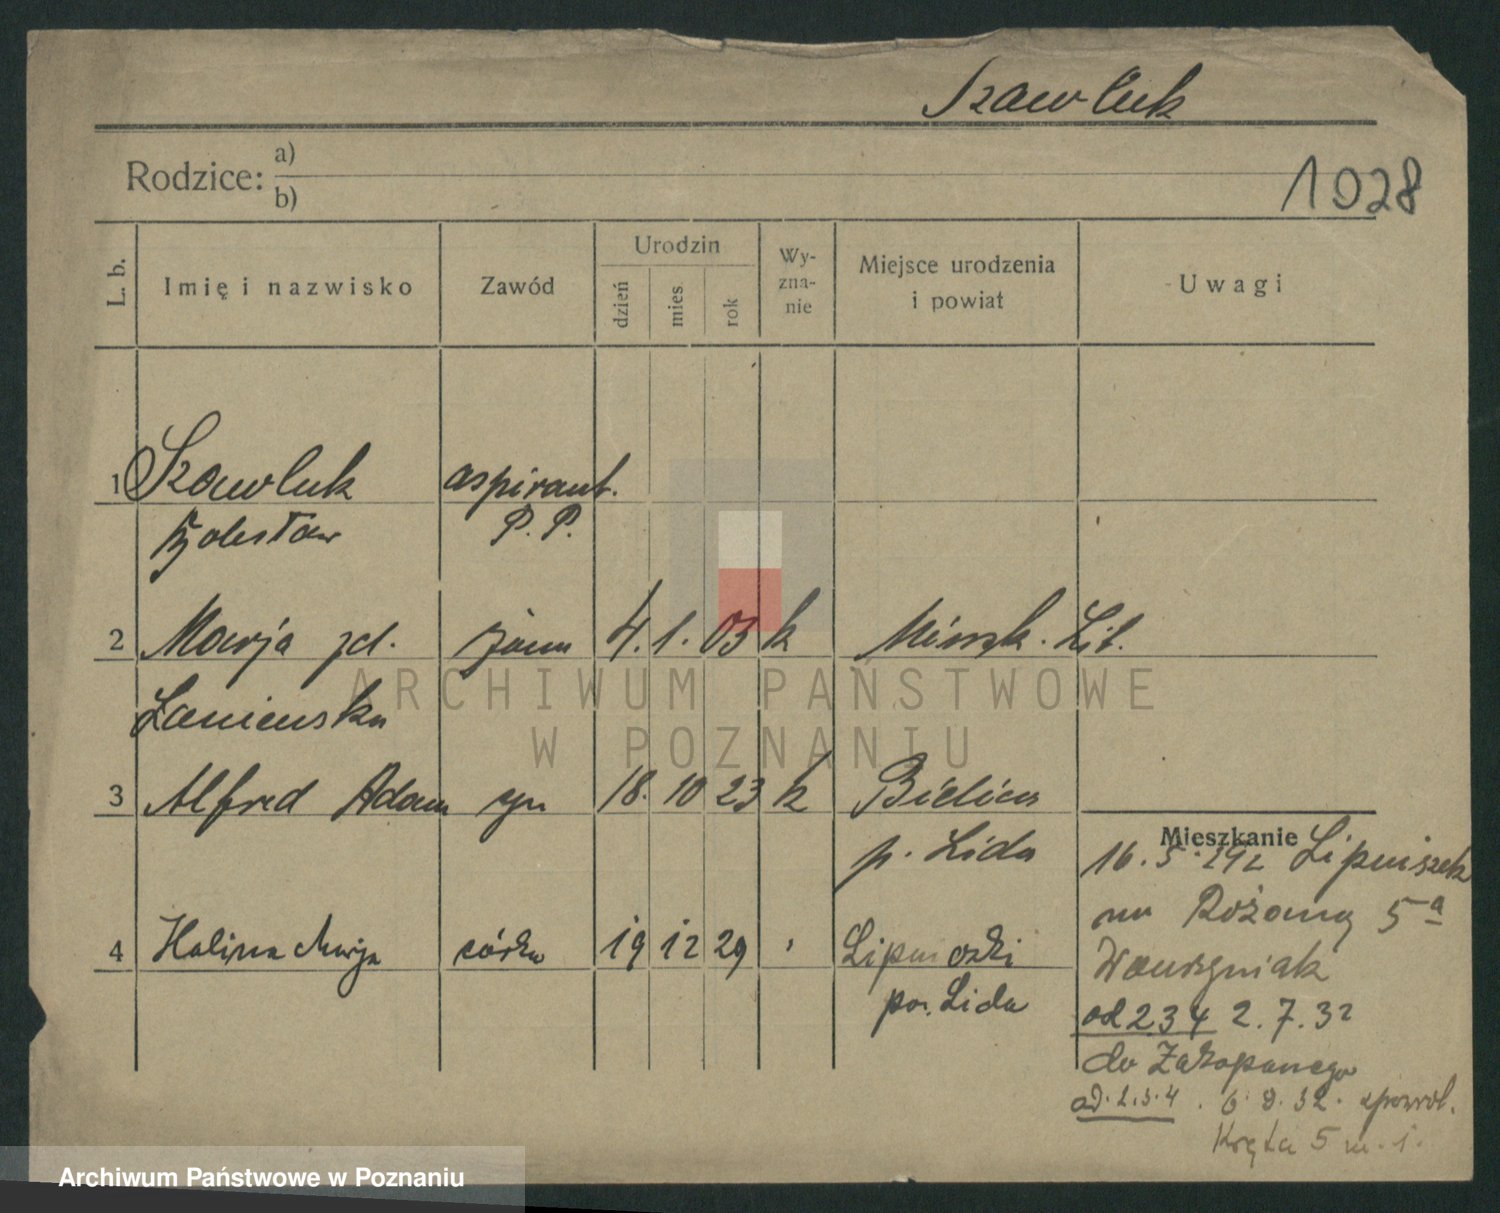 Szawluk
Rodzice: a)
b)
1028
L. b. Imię i nazwisko Zawód Urodzin dzień mies rok Wy-zna-nie Miejsce urodzenia i powiat Uwagi
1 Szawluk aspirant.
Bolesław P. P.
2 Marja zd. żona 4. 1. 03 k Mińsk. Lit.
Łaniewska
3 Alfred Adam syn 18. 10 23 k Bielica
p. Lida
4 Halina Marja córka 19 12 29 Lipniszki
pow. Lida
Mieszkanie
16. 5. Lipniszek
na Różaną 5a
Wawrzyniak
od 2 3 4 2. 7. 32
do Zakopanego
ad. 2. 3. 4. 6. 9. 32. zpowrot.
Kręta 5 m. 1.
ARCHIWUM PAŃSTWOWE
W POZNANIU
Archiwum Państwowe w Poznaniu